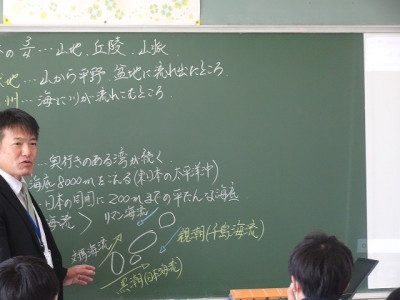 の 3/4 … 山地、丘陵、山脈
地 … 山から平野、盆地に流れ出たところ
州 … 海に川が流れこむところ
… 奥行きのある湾が続く
海底8000mをこえる(東日本の太平洋沖)
… 日本の周囲に200mまでの平たんな海底
海流 > リマン海流
対馬海流
親潮(千島海流)
黒潮(日本海流)